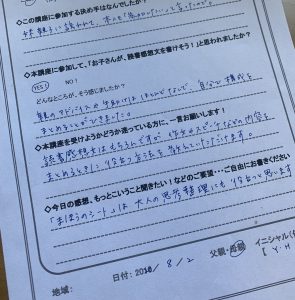 ◇この講座に参加する決め手はなんでしたか?
娘が
◇本講座に参加して、「お子さんが、読書感想文を書けそう!」と思われましたか?
YES! NO!
どんなところが、そう感じましたか?
親のアドバイスや手助けはほとんどなしで、自分で構成を
まとめることができました。
◇本講座を受けようかどうか迷っている方に、一言お願いします!
読書感想文はもちろんですが 作文やスピーチなどの内容を
まとめるときに 役立つ方法を 学んでいただけます。
◇今日の感想、もっとこういうこと聞きたい!などのご要望・・・ご自由にお書きください
「まほうのシート」は 大人の思考整理にも 役立つと思います
地域: 日付: / 8 / 2 父親・母親 イニシャル
【 Y.H